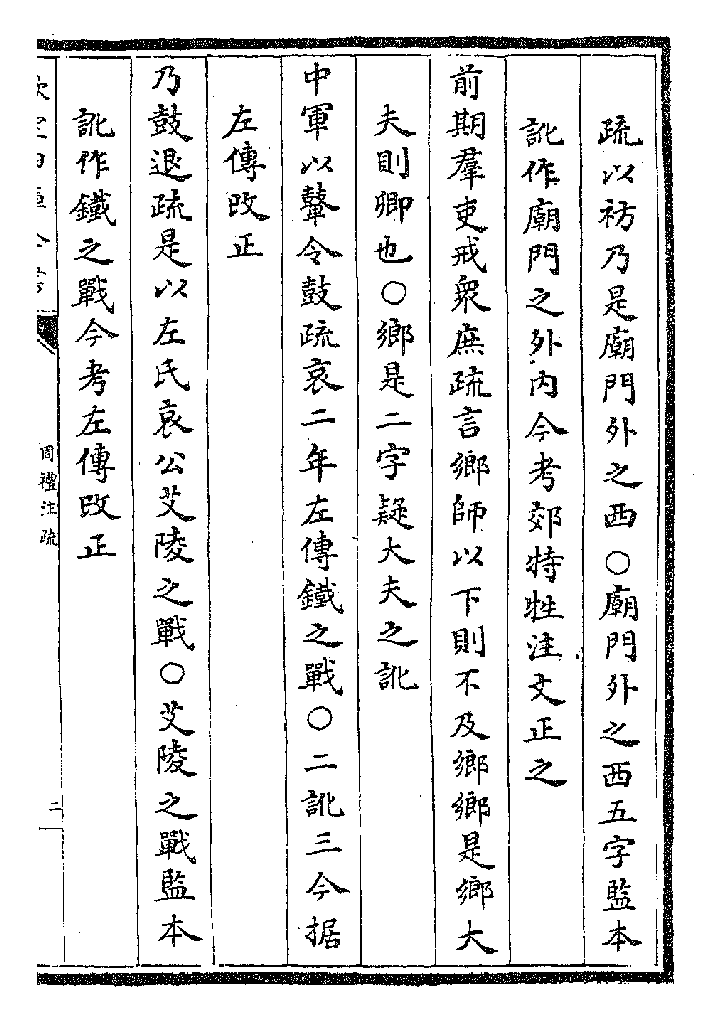 疏以祊乃是廟門外之西○廟門外之西五字監本
訛作廟門之外内今考郊特牲注文正之
前期羣吏戒衆庶疏言鄉師以下則不及鄉鄉是鄉大
夫則卿也○鄉是二字疑大夫之訛
中軍以鼙令鼓疏哀二年左傳鐵之戰○二訛三今据
左傳改正
乃鼓退疏是以左氏哀公艾陵之戰○艾陵之戰監本
訛作鐵之戰今考左傳改正
周禮注疏
二